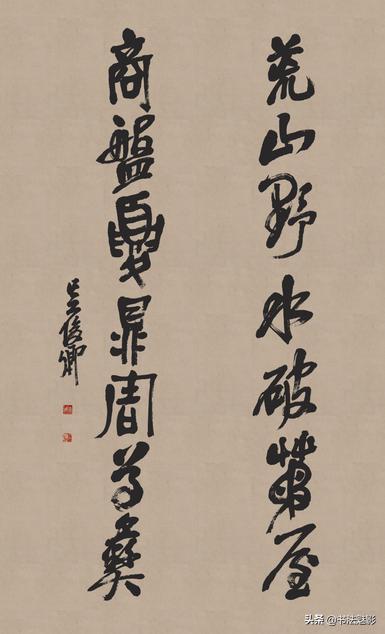 荒山野水破屋
商盤夏鼎周尊彝
吳俊卿
头条 @书法魅影